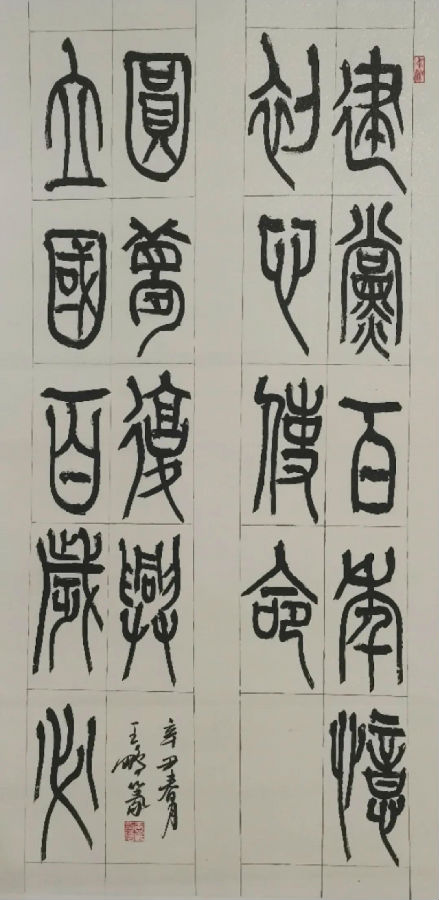 建黨百年憶
初心使命
立國百歲必
圓夢復興
辛丑春月
王鵬篆